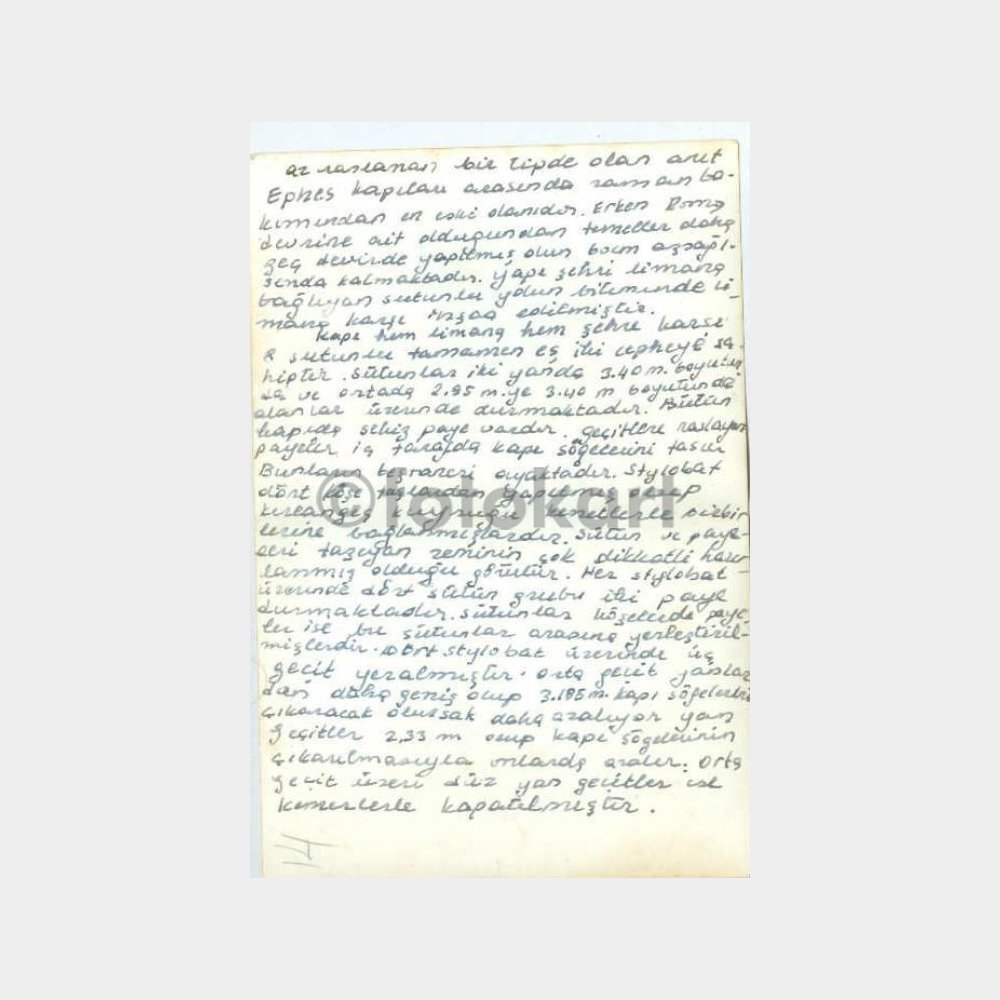 az raslanan bir tipde olan anıt
Ephes kapıları arasında zaman ba-
kımından en eski olanıdır. Erken Roma
devrine ait olduğundan temeller daha
geç devirde yapılmış olun
sında kalmaktadır. yapı şehri limana
bağlıyan sutunlu yolun bitiminde li-
mana karşı inşaa edilmiştir.
kapı hem limana hem şehre karşı
sutunlu tamamen eş iki cepheye sa-
hiptir. sütunlar iki yanda 3.40 m. boyutun
da ve ortada 2.95 m. ye 3.40 m boyutunda
alanlar üzerinde durmaktadır. Bütün
kapıda sekiz paye vardır. geçitlere raslayan
payeler iç tarafda kapı söğelerini taşır
Bunların beş tanesi ayaktadır. Stylobat
dört köşe taşlardan yapılmış olup
kırlangıç kuyruğu kenetlerle birbir
lerine bağlanmışlardır. sütun ve paye-
leri taşıyan zeminin çok dikkatli hazır-
lanmış olduğu görülür. Her stylobat
üzerinde dört sütun grubu iki paye
durmaktadır. sütunlar köşelerde paye-
ler ise bu sütunlar arasına yerleştiril-
mişlerdir. Dört stylobat üzerinde üç
geçit yeralmıştır. orta geçit yanlar
dan daha geniş olup 3.185 m. kapı söğelerini
çıkaracak olursak daha azalıyor yan
geçitler 2,33 m olup kapı söğelerinin
çıkarılmasıyla onlarda azalır. Orta
geçit üzeri düz yan geçitler ise
kemerlerle kapatılmıştır.
14
© fotokart